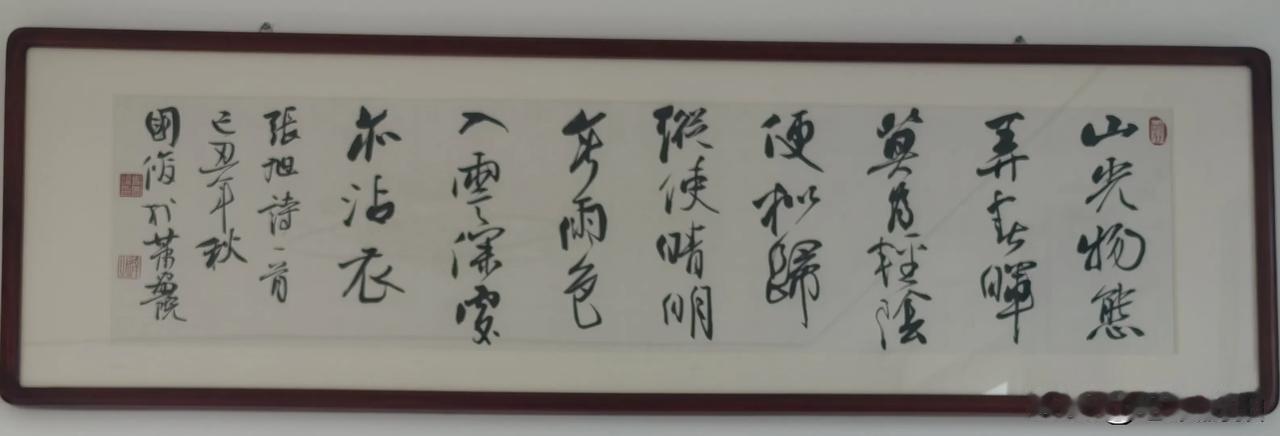 山光物態
弄春暉
莫為輕陰
便拟歸
縱使晴明
無雨色
入雲深處
亦沾衣
張旭詩一首
己丑年秋
國俊於畫院